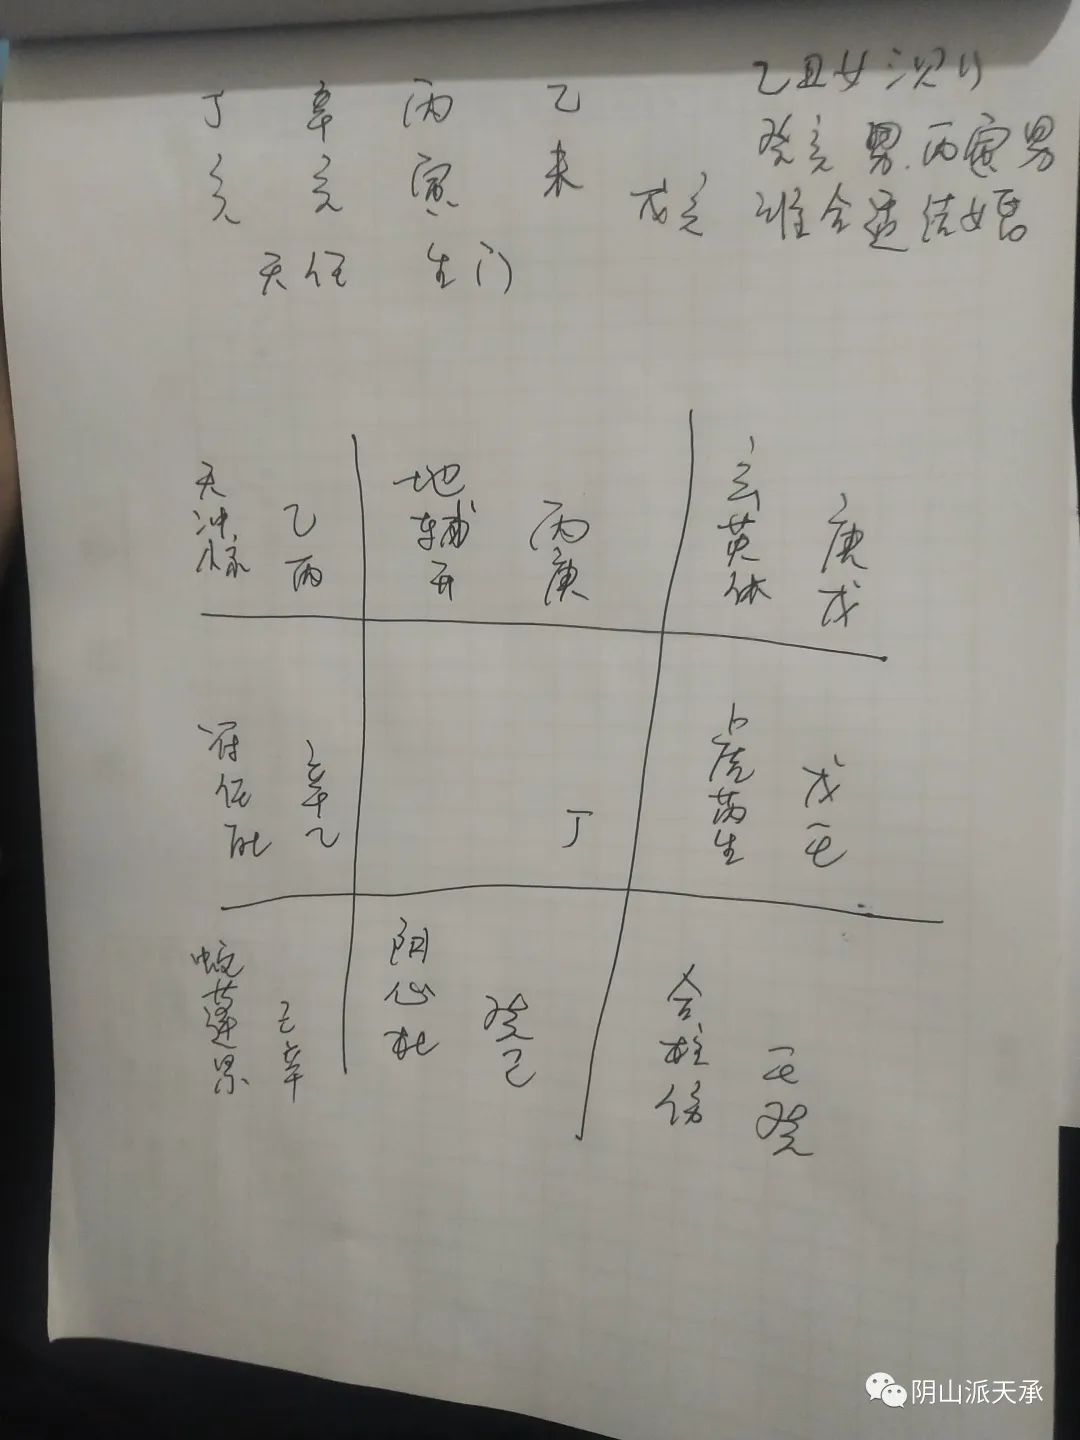 丁 辛 丙 乙 乙丑女测
亥 亥 寅 未 癸亥男.丙寅男
戊亥 谁合适结婚。
天任 生门
天 地 玄
冲 乙 辅 丙 英 庚
惊 丙 开 庚 休 戊
符 虎
任 辛 芮 戊
乙 丁 生 壬
蛇 阴 合
蓬 己 心 癸 柱 壬
景 辛 杜 己 伤 癸
阴山派天承